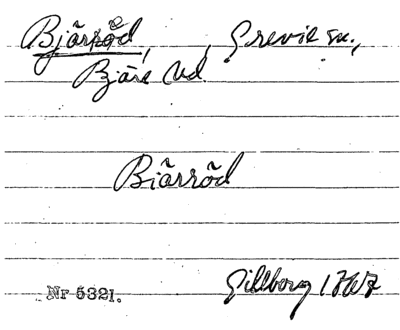 Bjärröd, , Grevie sn.,
Bjäre hd.
Biärröd
Nr 5321. Gillberg 1767